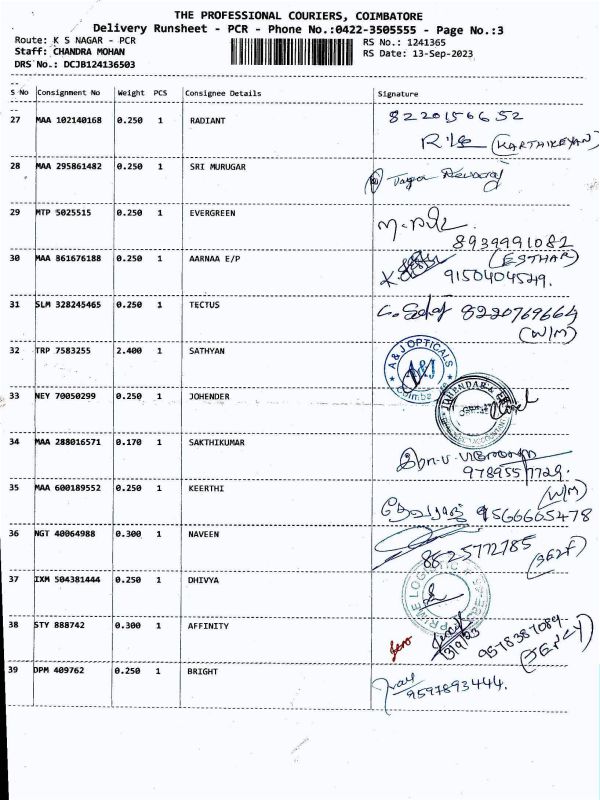 THE PROFESSIONAL COURIERS, COIMBATORE
Delivery Runsheet - PCR - Phone No.:0422-3505555 - Page No.:3
Route: K S NAGAR - PCR
RS No.: 1241365
Staff: CHANDRA MOHAN
RS Date: 13-Sep-2023
DRS No.: DCJB124136503
S No Consignment No Weight PCS Consignee Details Signature
27 MAA 102140168 0.250 1 RADIANT 8220156652
(KARTHIKEYAN)
28 MAA 295861482 0.250 1 SRI MURUGAR
29 MTP 5025515 0.250 1 EVERGREEN
8939991082
(ESTHAR)
30 MAA 861676188 0.250 1 AARNAA E/P
9150404529.
31 SLM 328245465 0.250 1 TECTUS 8220769664
(W/M)
32 TRP 7583255 2.400 1 SATHYAN
A & J OPTICALS
A&J
33 NEY 70050299 0.250 1 JOHENDER
34 MAA 288016571 0.170 1 SAKTHIKUMAR
(W/M)
35 MAA 600189552 0.250 1 KEERTHI
9566665478
36 NGT 40064988 0.300 1 NAVEEN
8825772785
(self)
37 IXM 504381444 0.250 1 DHIVYA
PRIME LOGISTIC
38 STY 888742 0.300 1 AFFINITY
9578387089.
(JERCY)
39 DPM 409762 0.250 1 BRIGHT
9597893444.